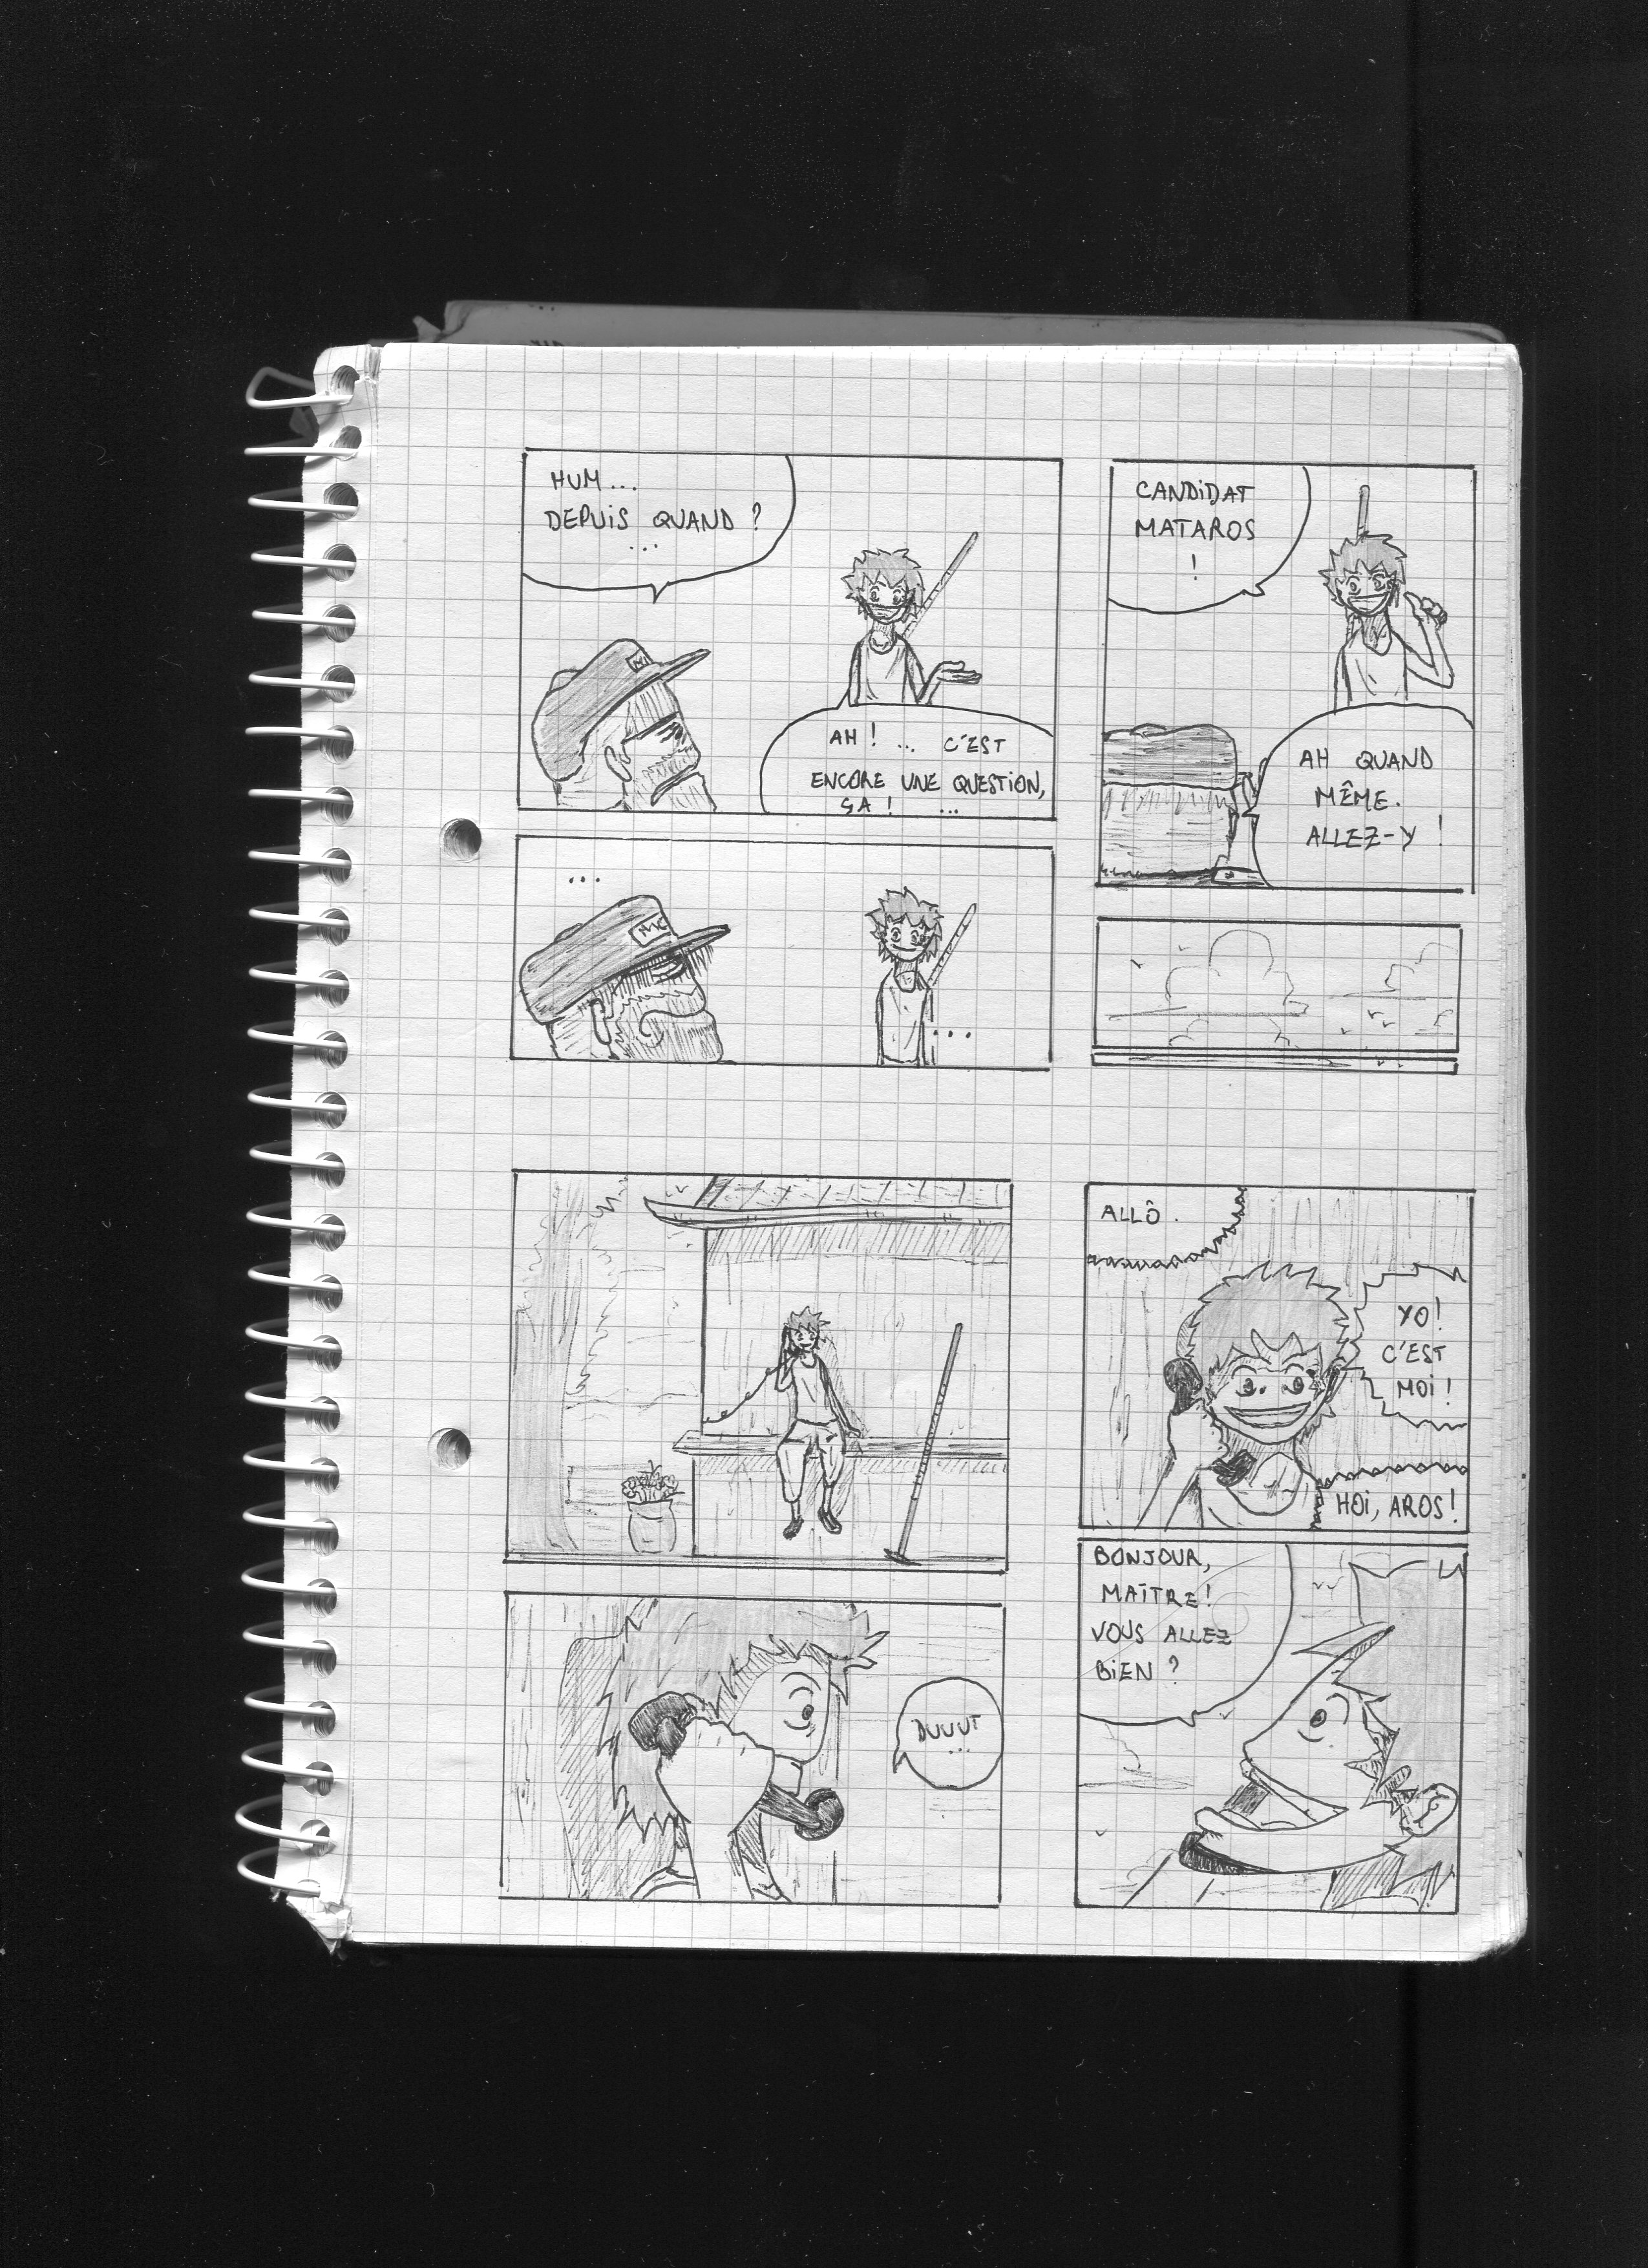 HUM...
DEPUIS QUAND ?
...
AH ! ... C'EST
ENCORE UNE QUESTION,
ÇA ! ...
CANDIDAT
MATAROS
!
AH QUAND
MÊME.
ALLEZ-Y !
...
...
ALLÔ.
YO!
C'EST
MOI !
HOI, AROS!
DUUUT
...
BONJOUR,
MAÎTRE!
VOUS ALLEZ
BIEN ?